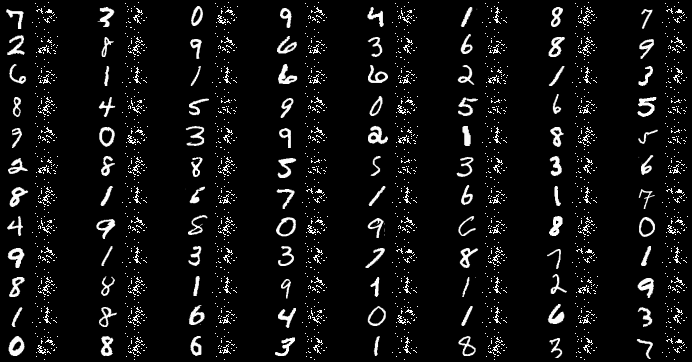 7 3 0 9 4 1 8 7
2 8 9 6 3 6 8 9
6 1 1 6 6 2 1 3
8 4 5 9 0 5 6 5
9 0 3 9 2 1 8 5
2 8 8 5 5 3 3 6
8 1 6 7 1 6 1 7
4 9 8 0 9 6 8 0
9 1 3 3 7 8 7 1
8 8 1 9 1 1 2 9
1 8 6 4 0 1 6 3
0 8 6 3 1 8 3 7